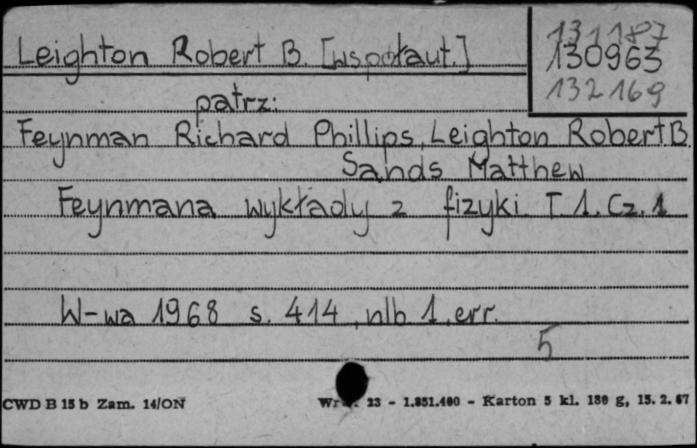 131187
Leighton Robert B. [współaut.]
130963
132169
patrz:
Feynman Richard Phillips, Leighton Robert B.
Sands Matthew
Feynmana wykłady z fizyki. T 1. Cz. 1
W-wa 1968 s. 414, nlb 1, err.
5
CWD B 15 b Zam. 14/ON
23 - 1.851.400 - Karton 5 kl. 180 g, 15. 2. 67